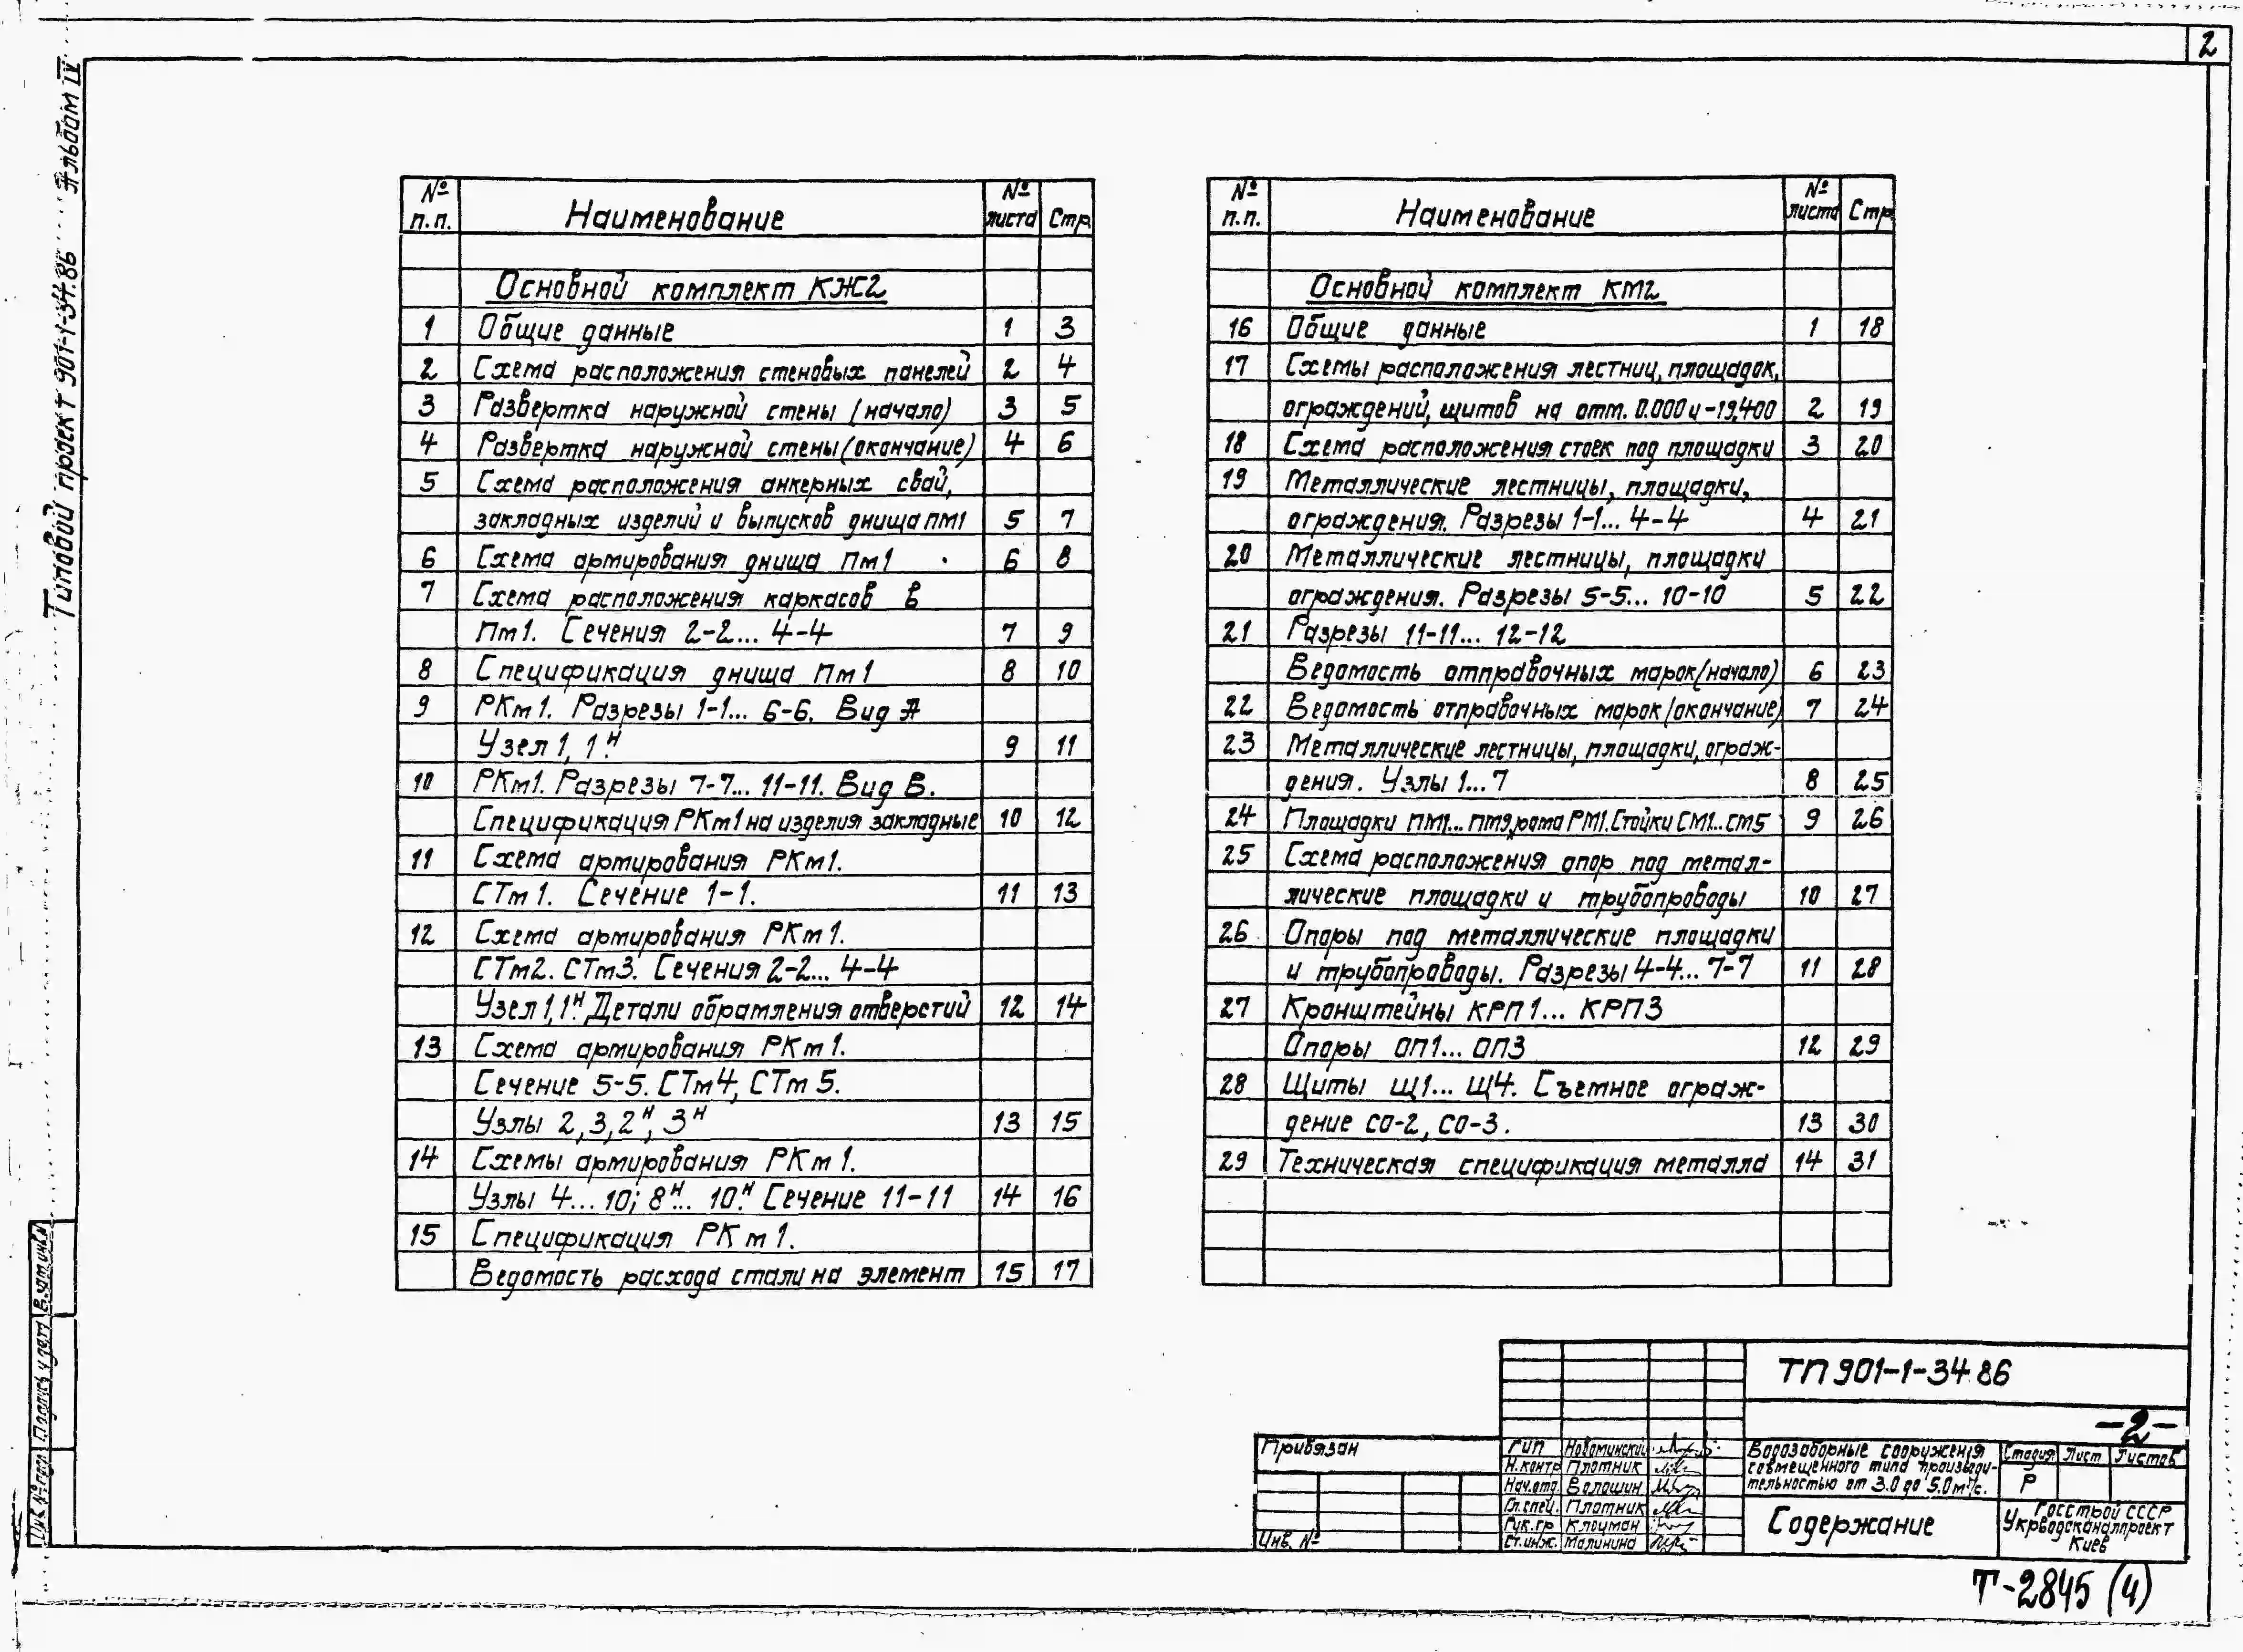 2
Типовой проект 901-1-34.86 Альбом IV
№ п.п. Наименование № листа Стр.
Основной комплект КЖ2
1 Общие данные 1 3
2 Схема расположения стеновых панелей 2 4
3 Развертка наружной стены (начало) 3 5
4 Развертка наружной стены (окончание) 4 6
5 Схема расположения анкерных свай,
закладных изделий и выпусков днища ПМ1 5 7
6 Схема армирования днища Пм1 6 8
7 Схема расположения каркасов в
Пм1. Сечения 2-2... 4-4 7 9
8 Спецификация днища Пм1 8 10
9 РКм1. Разрезы 1-1... 6-6. Вид А
Узел 1, 1н 9 11
10 РКм1. Разрезы 7-7... 11-11. Вид В.
Спецификация РКм1 на изделия закладные 10 12
11 Схема армирования РКм1.
СТм1. Сечение 1-1. 11 13
12 Схема армирования РКм1.
СТм2. СТм3. Сечения 2-2... 4-4
Узел 1, 1н. Детали обрамления отверстий 12 14
13 Схема армирования РКм1.
Сечение 5-5. СТм4, СТм5.
Узлы 2, 3, 2н, 3н 13 15
14 Схемы армирования РКм1.
Узлы 4... 10; 8н... 10н. Сечение 11-11 14 16
15 Спецификация РКм1.
Ведомость расхода стали на элемент 15 17
№ п.п. Наименование № листа Стр
Основной комплект КМ2
16 Общие данные 1 18
17 Схемы расположения лестниц, площадок,
ограждений, щитов на отм. 0.000 и -19,400 2 19
18 Схема расположения стоек под площадки 3 20
19 Металлические лестницы, площадки,
ограждения. Разрезы 1-1... 4-4 4 21
20 Металлические лестницы, площадки
ограждения. Разрезы 5-5... 10-10 5 22
21 Разрезы 11-11... 12-12
Ведомость отправочных марок (начало) 6 23
22 Ведомость отправочных марок (окончание) 7 24
23 Металлические лестницы, площадки, ограж-
дения. Узлы 1...7 8 25
24 Площадки ПМ1... ПМ9, рама РМ1. Стойки СМ1... СМ5 9 26
25 Схема расположения опор под метал-
лические площадки и трубопроводы 10 27
26 Опоры под металлические площадки
и трубопроводы. Разрезы 4-4... 7-7 11 28
27 Кронштейны КРП1... КРП3
Опоры ОП1... ОП3 12 29
28 Щиты Щ1... Щ4. Съемное ограж-
дение СО-2, СО-3. 13 30
29 Техническая спецификация металла 14 31
Инв.№ подл Подпись и дата В.зам.инв.№
ТП 901-1-34.86
-2-
Привязан
Инв. №
ГИП Новоминский
Н.контр Плотник
Нач.отд. Волошин
Гл.спец. Плотник
Рук.гр Клоцман
Ст.инж. Малинина
Водозаборные сооружения
совмещенного типа производи-
тельностью от 3.0 до 5.0 м³/с.
Стадия Лист Листов
Р
Содержание
Госстрой СССР
Укрводоканалпроект
Киев
Т-2845 (4)